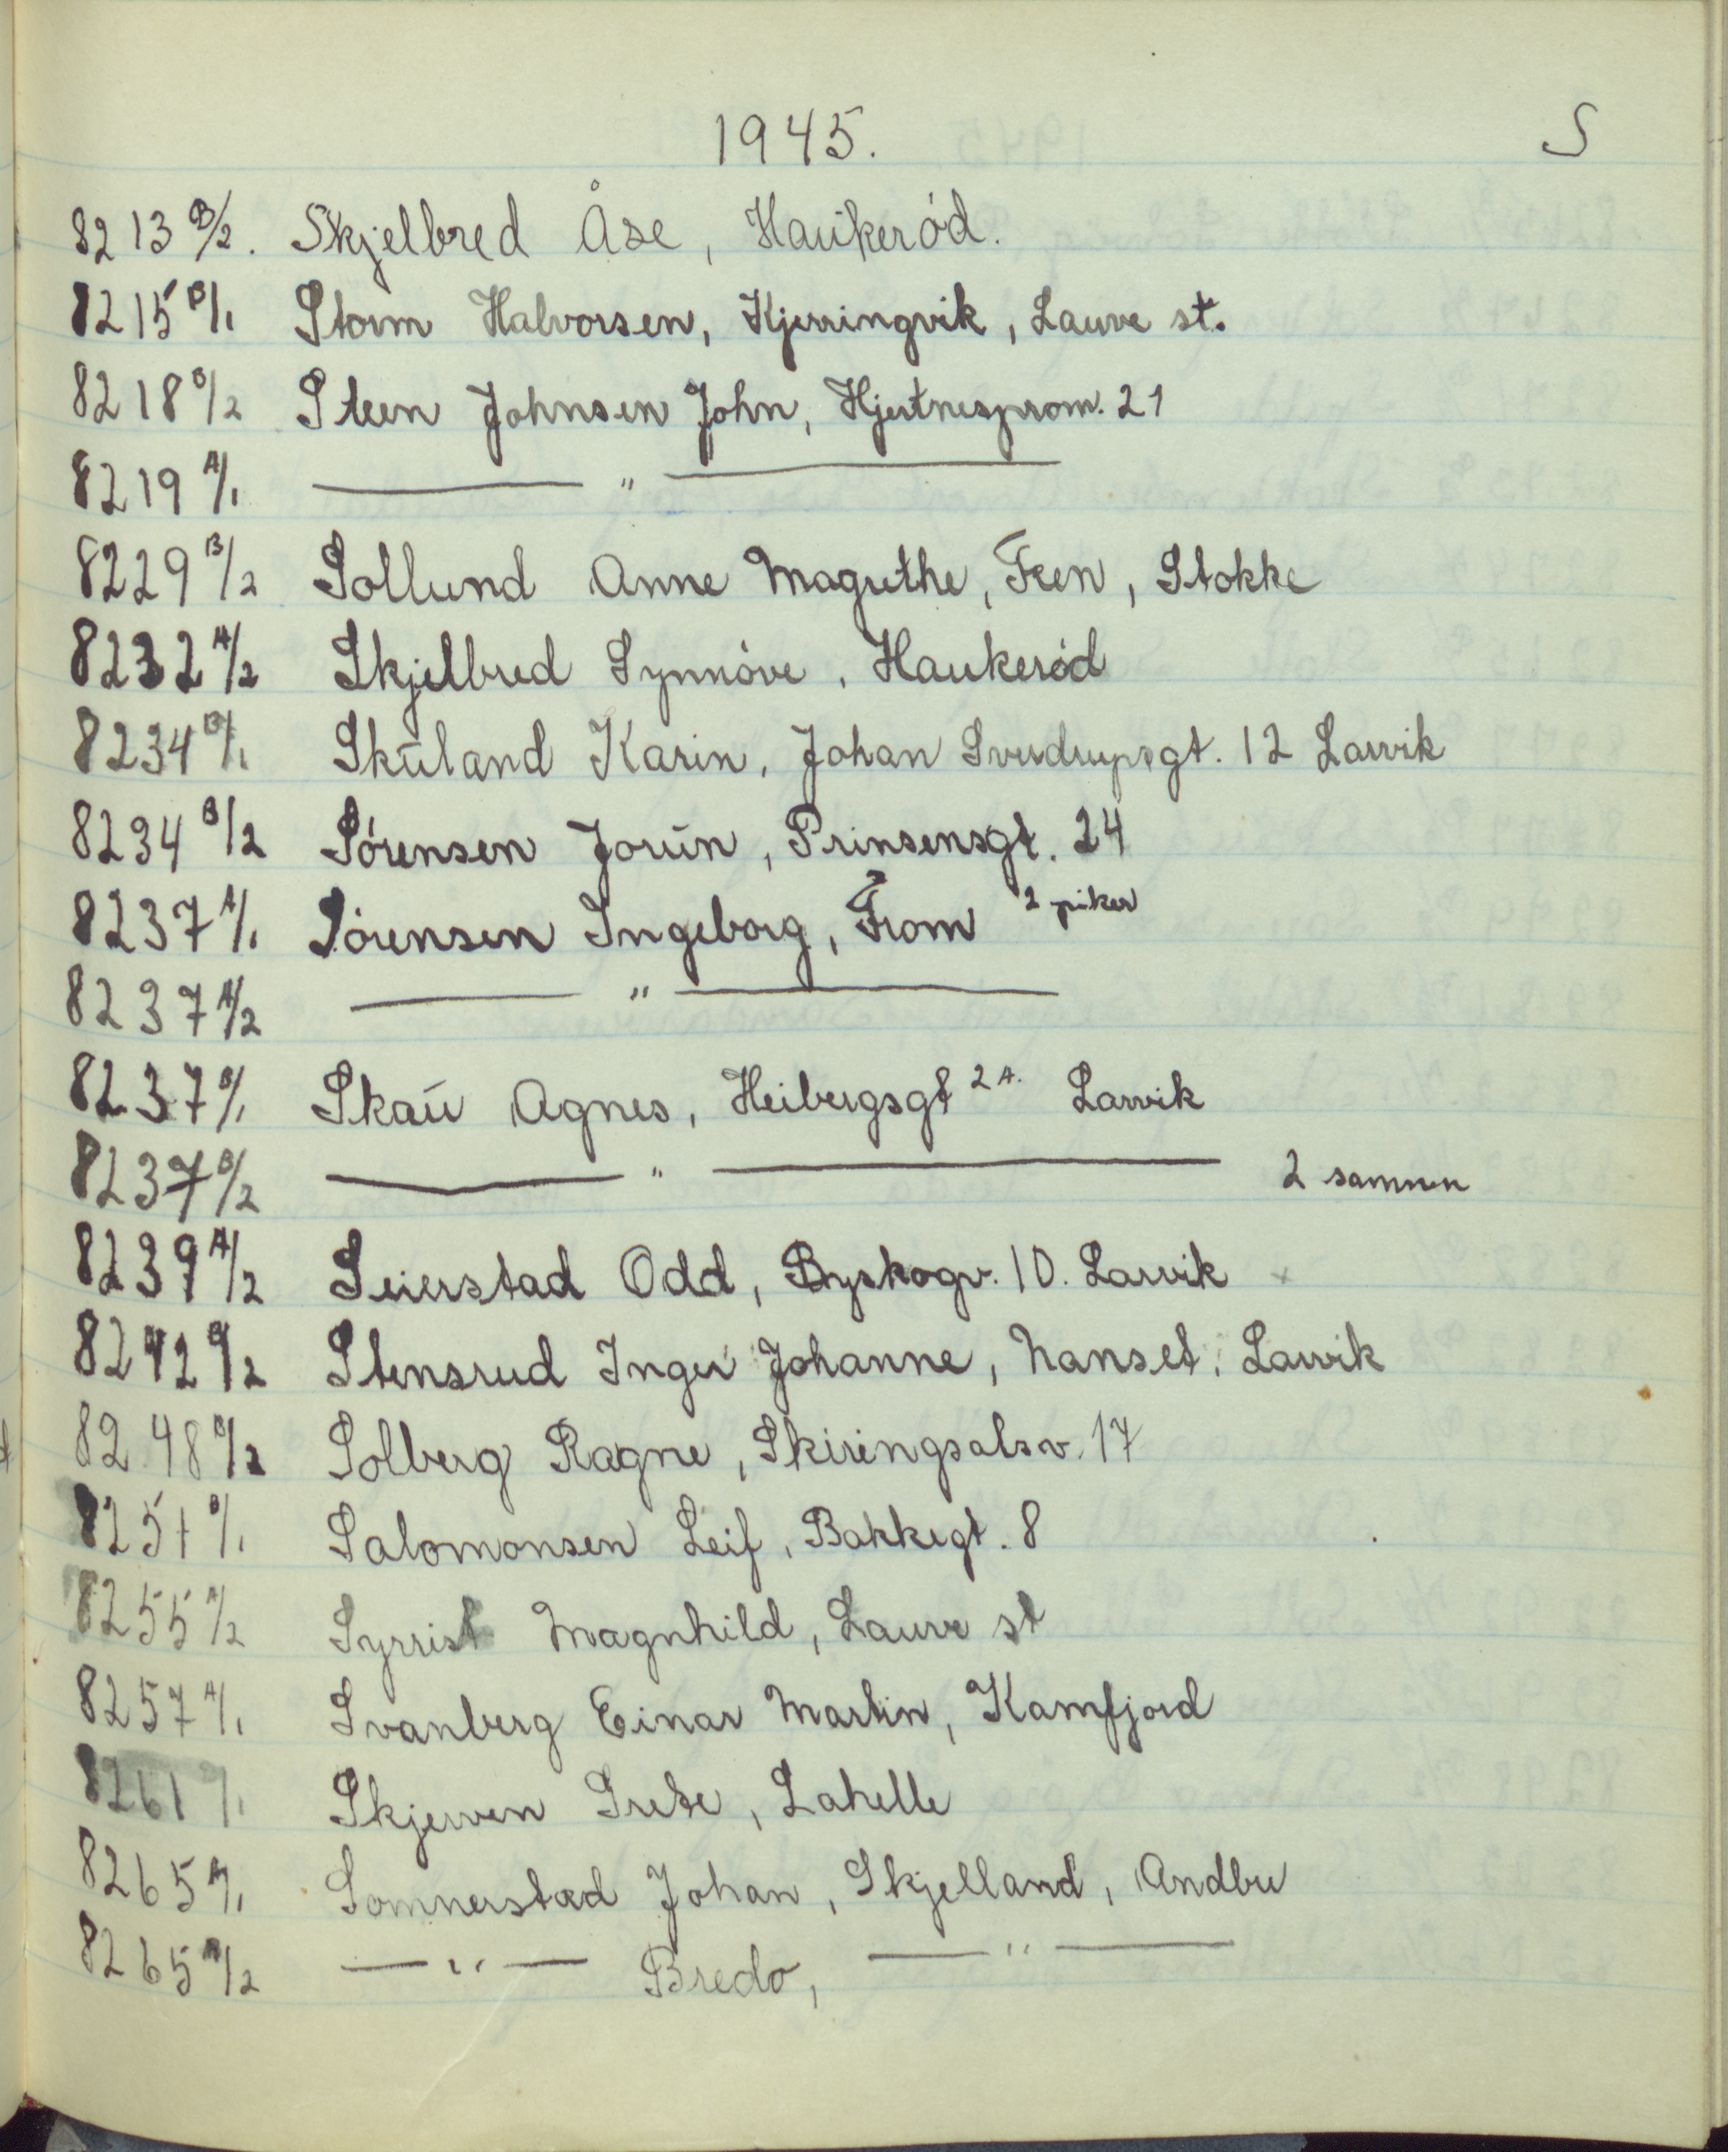 1945. S
8213 B/2. Skjelbred Åse, Haukerød.
8215 B/1 Storm Halvorsen, Kjerringvik, Lauve st.
8218 B/2 Steen Johnsen John, Hjertnesprom. 21
8219 A/1 —— " ——
8229 B/2 Sollund Anne Magrethe, Fen, Stokke
8232 A/2 Skjelbred Synnøve, Haukerød
8234 B/1 Skuland Karin, Johan Sverdrupsgt. 12 Larvik
8234 B/2 Sørensen Jorun, Prinsensgt. 24
8237 A/1 Sørensen Ingeborg, From 2 piker
8237 A/2 —— " ——
8237 B/1 Skau Agnes, Heibergsgt 2A. Larvik
8237 B/2 —— " —— 2 sammen
8239 A/2 Seierstad Odd, Byskogv. 10. Larvik
8242 /2 Stensrud Inger Johanne, Nanset, Larvik
8248 /2 Solberg Ragne, Skiringsalsv. 17
8251 B/1 Salomonsen Leif, Bakkegt. 8
8255 A/2 Syrrist Magnhild, Lauve st
8257 A/1 Svanberg Einar Martin, Kamfjord
8261 /1 Skjerven Grete, Lahelle
8265 A/1 Sommerstad Johan, Skjelland, Andbu
8265 A/2 — " — Bredo, — " —